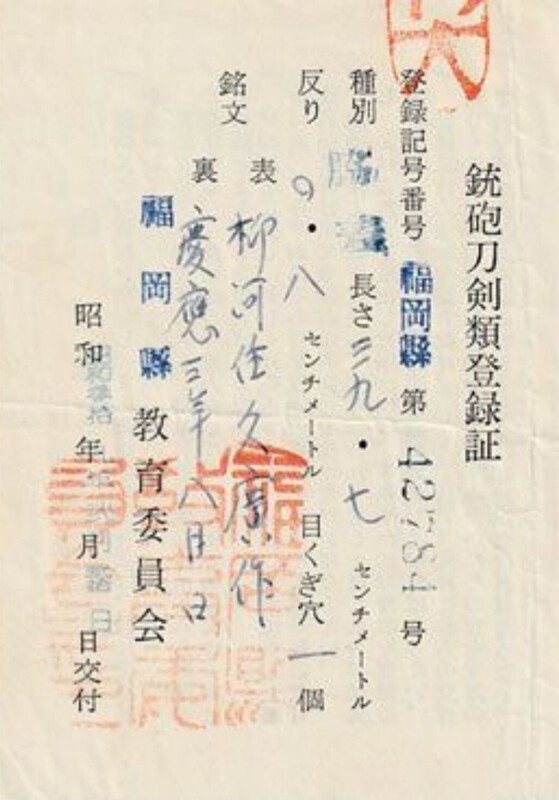 銃砲刀剣類登録証
登録記号番号 福岡縣 第 42784 号
種別 脇差 長さ 三九・七 センチメートル
反り 〇・八 センチメートル 目くぎ穴 一 個
銘文 表 柳河住久廣作
裏 慶應三年八月日
福岡縣教育委員会
昭和 年 月 日交付